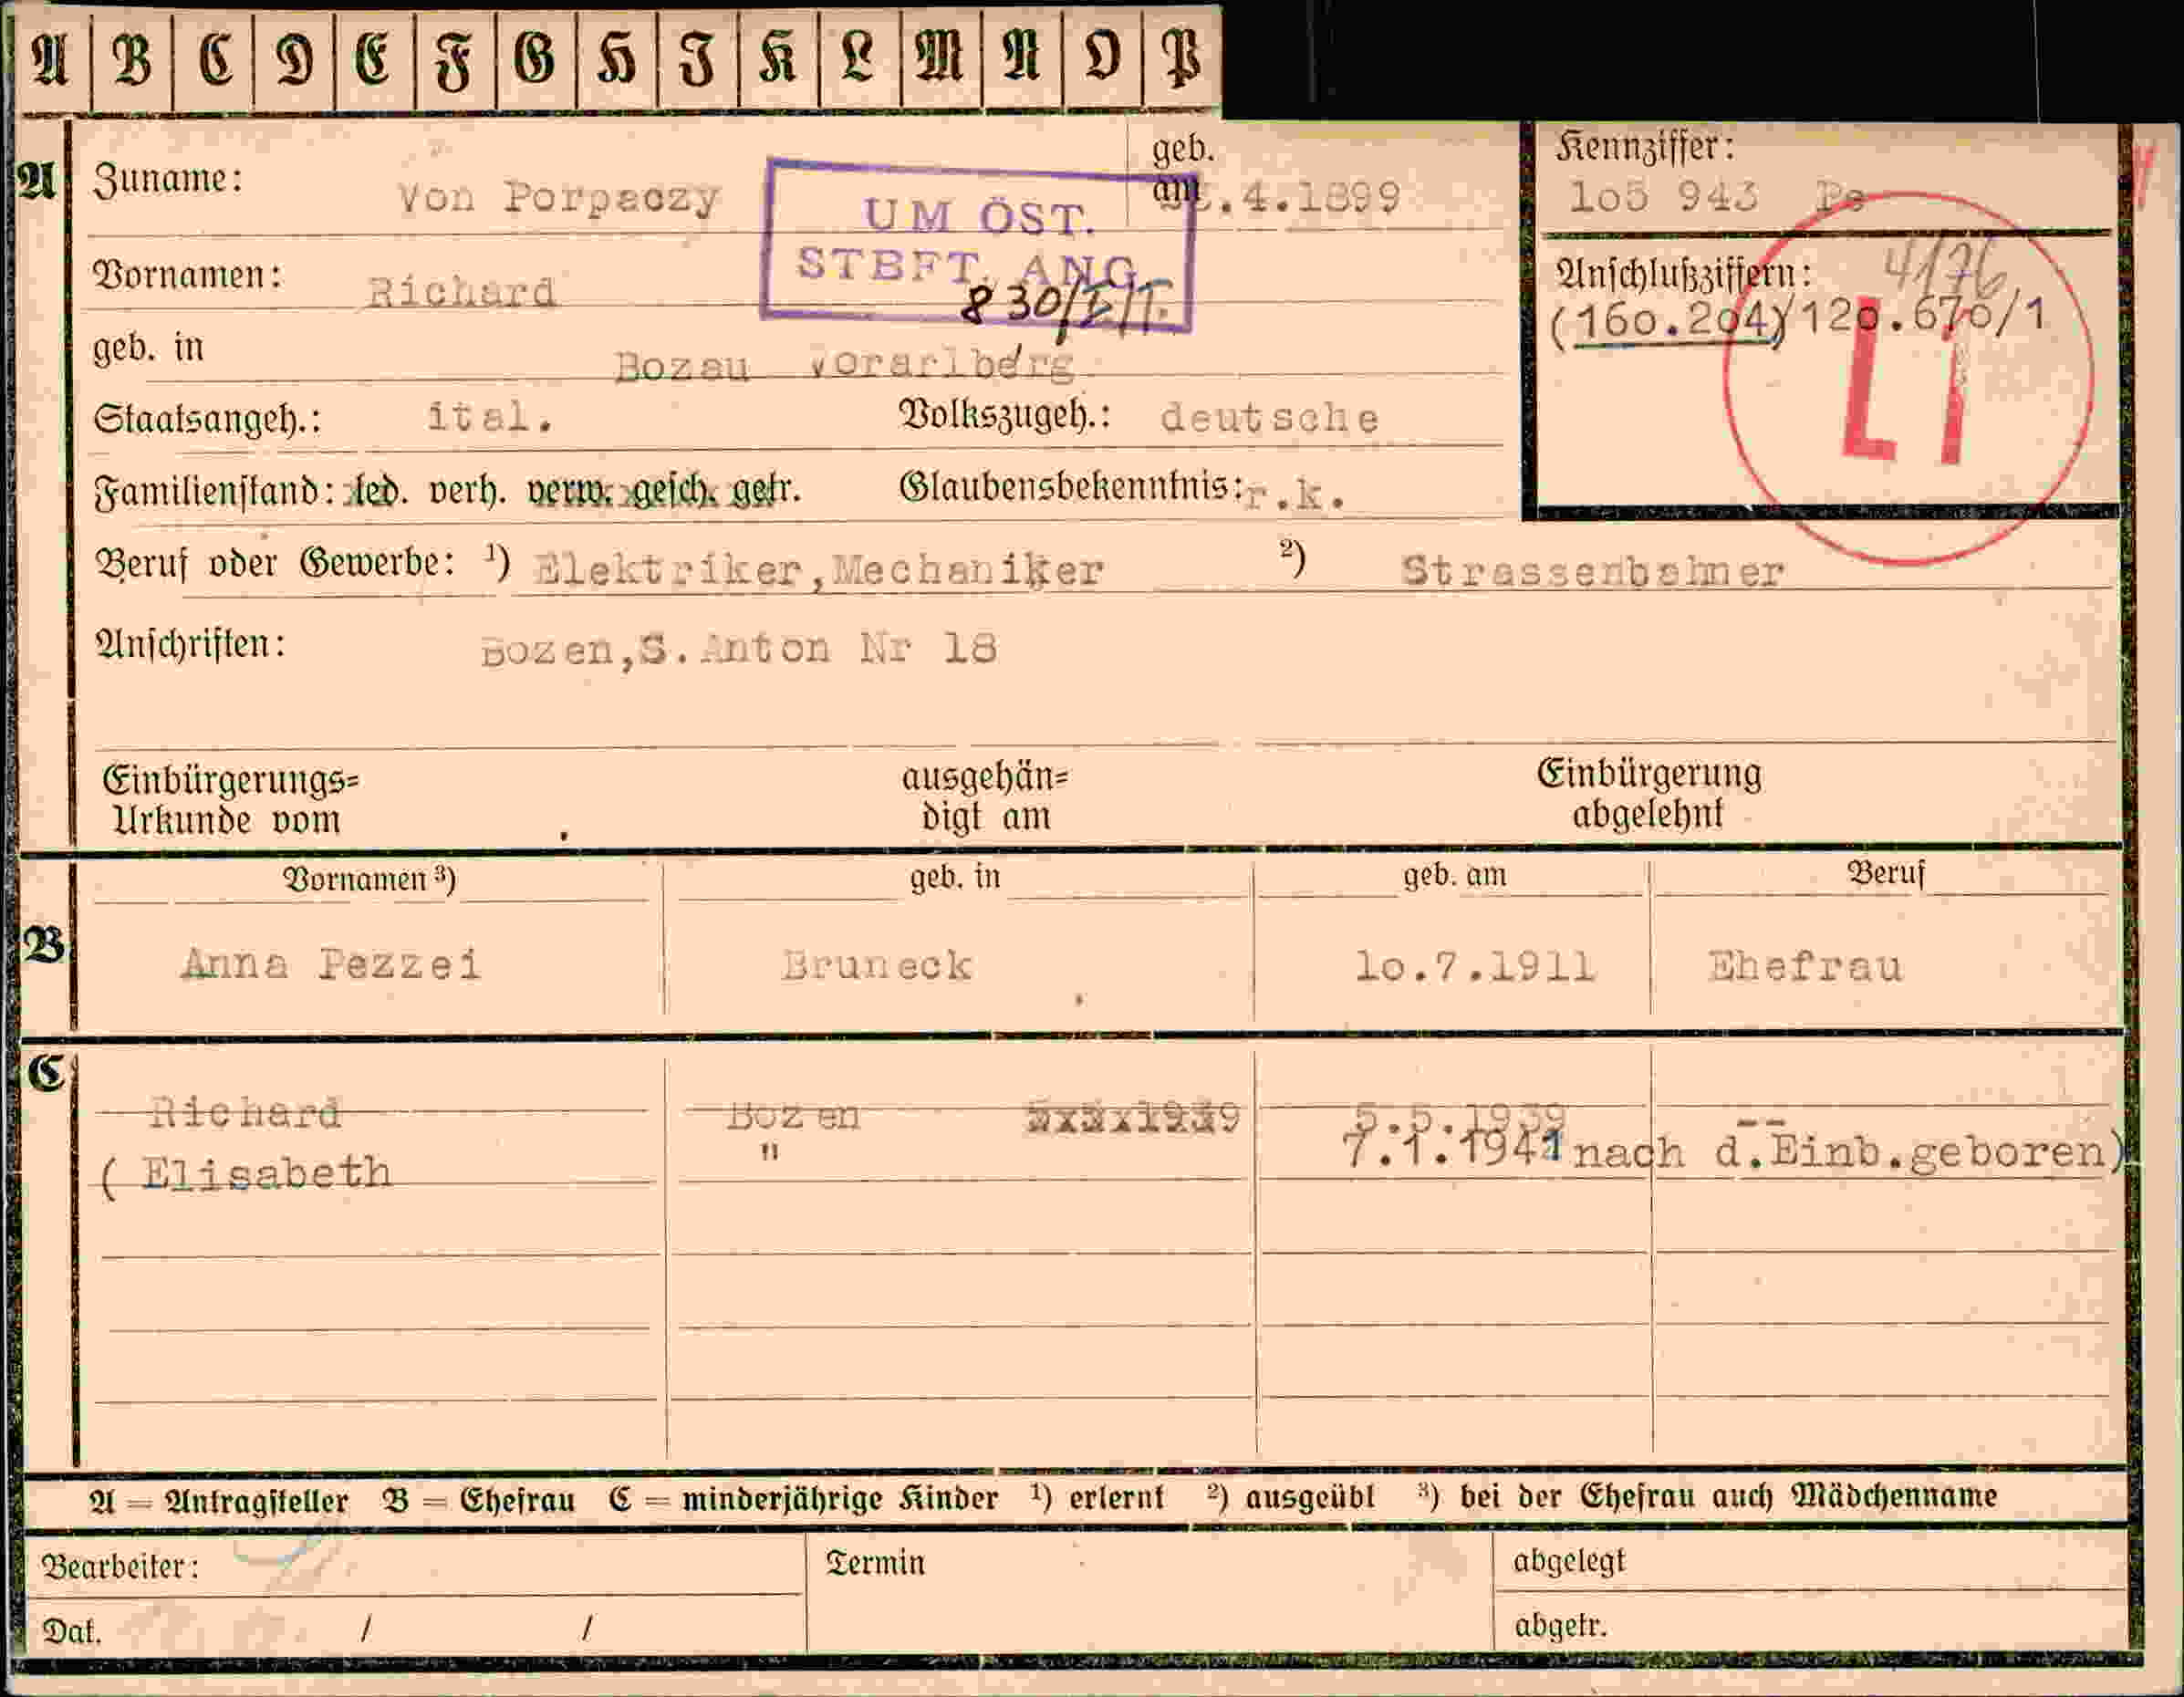 A B C D E F G H I K L M N O P
A Zuname: Von Porpaczy geb. am .4.1899
Kennziffer: 1o5 943 Pe
UM ÖST. STBFT. ANG.
830/
Vornamen: Richard
Anschlußziffern: 4/76
(16o.2o4)/12o.67o/1
Li
geb. in Bozau Vorarlberg
Staatsangeh.: ital. Volkszugeh.: deutsche
Familienstand: led. verh. verw. gesch. getr. Glaubensbekenntnis: r.k.
Beruf oder Gewerbe: ¹) Elektriker,Mechaniker ²) Strassenbahner
Anschriften: Bozen,S.Anton Nr 18
Einbürgerungs= ausgehän= Einbürgerung
Urkunde vom digt am abgelehnt
Vornamen ³) geb. in geb. am Beruf
B Anna Pezzei Bruneck 1o.7.1911 Ehefrau
C
Richard Bozen 5.5.1939 --
( Elisabeth " 7.1.1941 nach d.Einb.geboren)
A = Antragsteller B = Ehefrau C = minderjährige Kinder ¹) erlernt ²) ausgeübt ³) bei der Ehefrau auch Mädchenname
Bearbeiter: Termin abgelegt
Dat. / / abgetr.